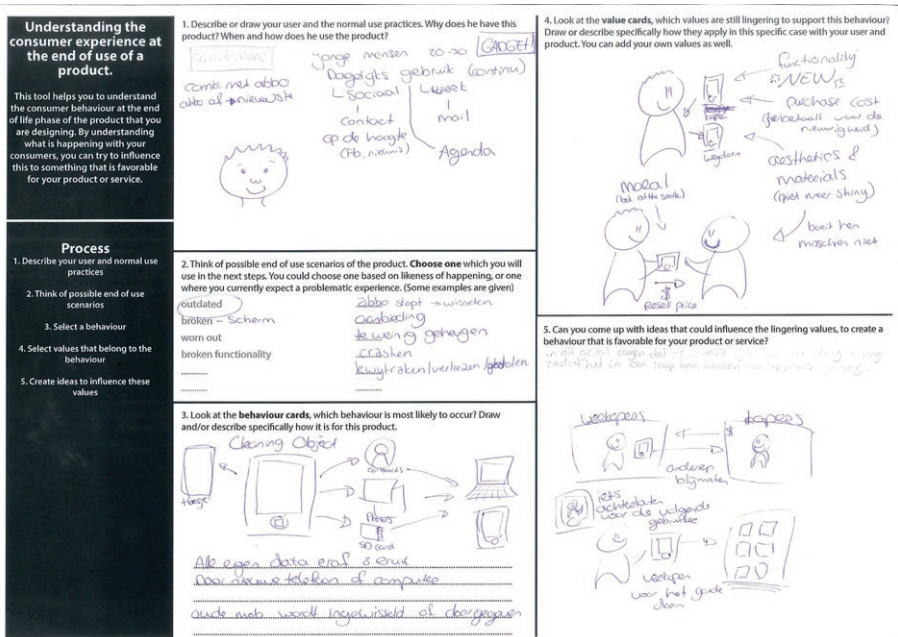 Understanding the
consumer experience at
the end of use of a
product.
This tool helps you to understand
the consumer behaviour at the end
of life phase of the product that you
are designing. By understanding
what is happening with your
consumers, you can try to influence
this to something that is favorable
for your product or service.
Process
1. Describe your user and normal use
practices
2. Think of possible end of use
scenarios
3. Select a behaviour
4. Select values that belong to the
behaviour
5. Create ideas to influence these
values
1. Describe or draw your user and the normal use practices. Why does he have this
product? When and how does he use the product?
smartphone
combi met abbo
abbo af → nieuwste
jonge mensen 20-30 GADGET!
Dagelijks gebruik (continu)
Sociaal
werk
contact
mail
op de hoogte
(Fb, nieuws)
Agenda
2. Think of possible end of use scenarios of the product. Choose one which you will
use in the next steps. You could choose one based on likeness of happening, or one
where you currently expect a problematic experience. (Some examples are given)
outdated
broken - Scherm
worn out
broken functionality
abbo stopt → wisselen
aanbieding
te weinig geheugen
crashen
kwijtraken/verliezen/gestolen
3. Look at the behaviour cards, which behaviour is most likely to occur? Draw
and/or describe specifically how it is for this product.
Cleaning Object
Hoesje
contacts
Photos
SD card
Alle eigen data eraf & eruit
Naar nieuwe telefoon of computer
oude mob wordt ingewisseld of doorgegeven
4. Look at the value cards, which values are still lingering to support this behaviour?
Draw or describe specifically how they apply in this specific case with your user and
product. You can add your own values as well.
functionality
NEW
purchase cost
(je betaalt voor de
nieuwigheid)
wegdoen
aesthetics &
materials
(niet meer shiny)
moral
(look at the smile)
boeit hen
misschien niet
$
Resell price
5. Can you come up with ideas that could influence the lingering values, to create a
behaviour that is favorable for your product or service?
in dit geval zorgen dat
zodat het in een loop kan komen
verkopers
kopers
$
anderen
blijmaken
iets
achterlaten
voor de volgende
gebruiker
verkopen
voor het goede
doen